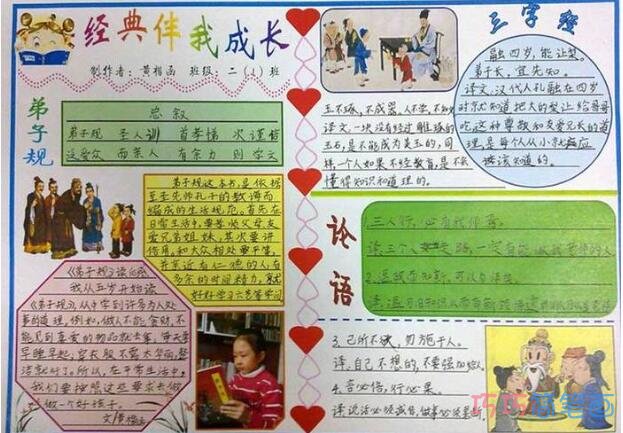 经典伴我成长
制作者：黄楷函 班级：二（1）班
弟子规
总叙
弟子规 圣人训 首孝悌 次谨信
泛爱众 而亲人 有余力 则学文
弟子规这本书，是依据
至圣先师孔子的教诲而
编成的生活规范。首先在
日常生活中，要孝敬父母友
爱兄弟姐妹，其次要讲
信用，和大众相处要平等，
并亲近有仁德的人，有
多余的时间精力，就
好好学习六艺等学问
《弟子规》读后感
我从五岁开始读
《弟子规》，从中学到许多为人处
事的道理，例如，做人不能贪财，不
能见到喜爱的物品就去拿，每天要
早睡早起，穿衣服不需太华丽，整
洁就好了。所以，在平常生活中，
我们要按照这些要求去做
做一个好孩子。
三字经
融四岁，能让梨。
弟子长，宜先知。
译文，汉代人孔融在四岁
时就知道把大的梨让给哥哥
吃，这种尊敬和友爱兄长的道
理是每个人从小就应
该知道的。
玉不琢，不成器。人不学，不知
译文，一块没有经过雕琢的
玉石，是不能成为美玉的，同
样，一个人如果不经教育，是不
懂得知识和道理的。
论语
1.三人行，必有我师焉。
译，三个人走路，一定有能
2.温故而知新，可以为师矣。
3.己所不欲，勿施于人。
译，自己不想的，不要强加给人。
4.言必信，行必果。
译，说话必须诚信，做事必须